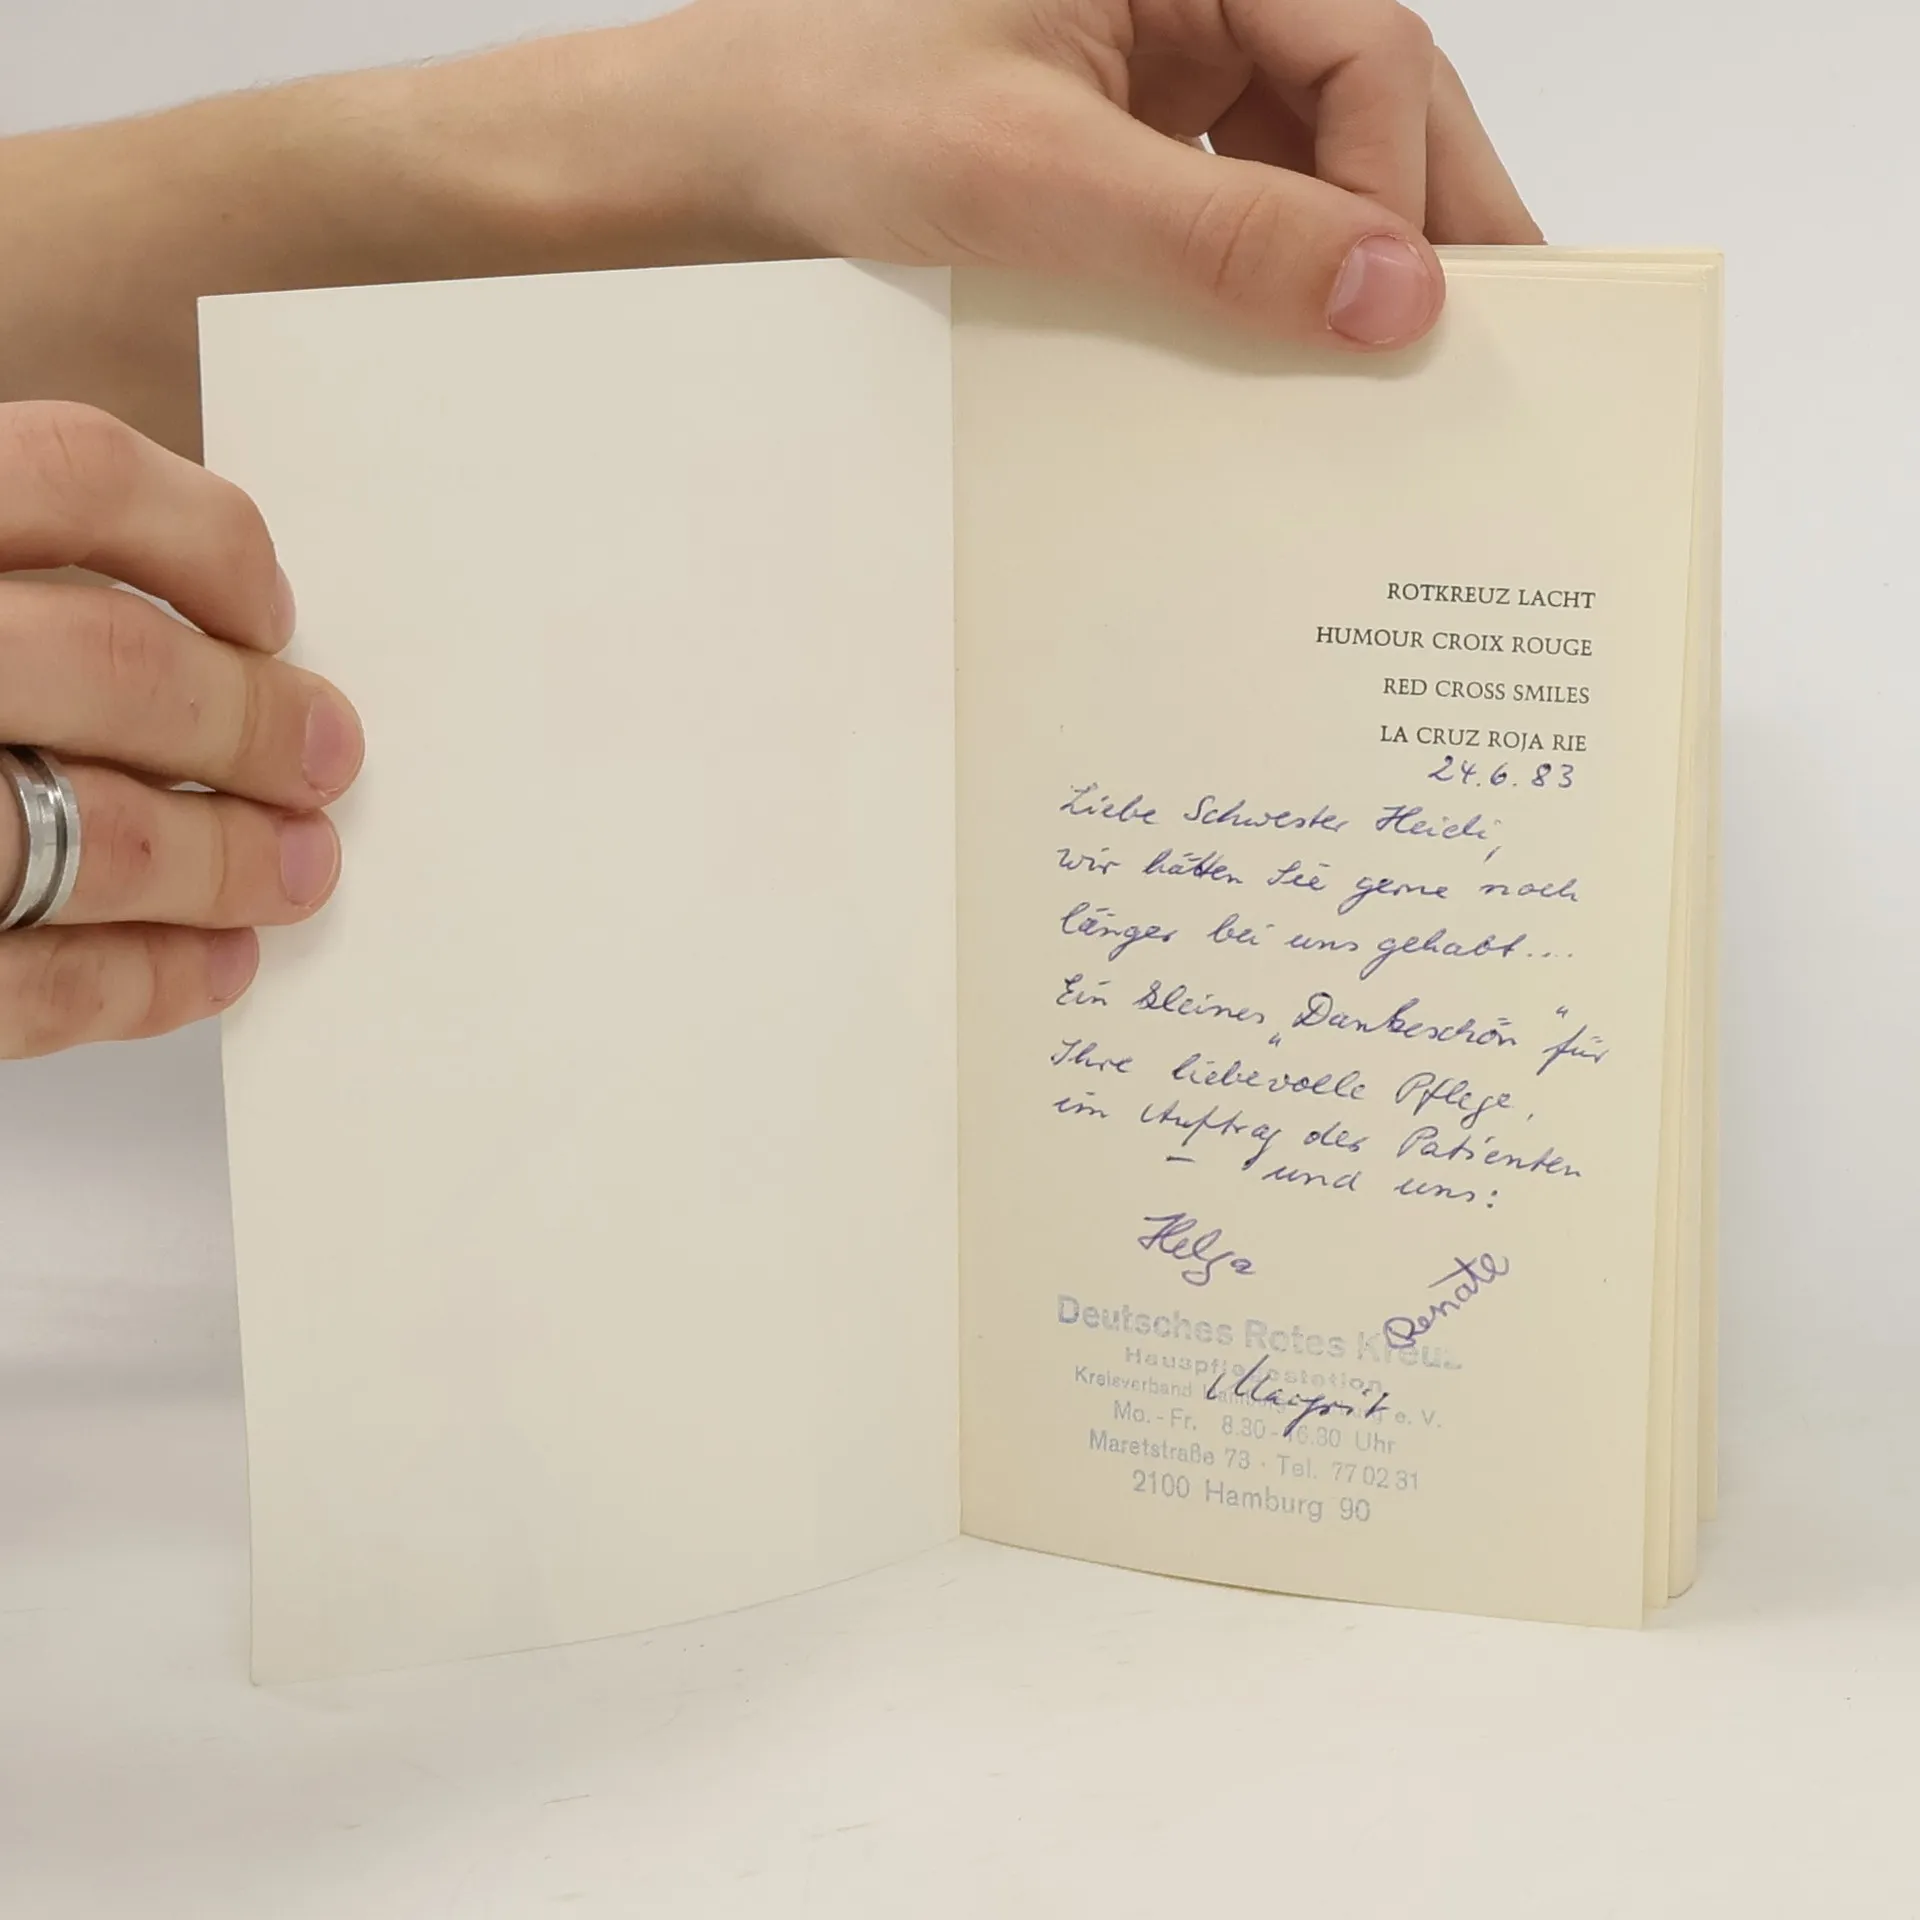 ROTKREUZ LACHT
HUMOUR CROIX ROUGE
RED CROSS SMILES
LA CRUZ ROJA RIE
24.6.83
Liebe Schwester Heidi,
wir hätten Sie gerne noch
länger bei uns gehabt....
Ein kleines „Dankeschön“ für
Ihre liebevolle Pflege,
im Auftrag der Patienten
– und uns:
Helga
Renate
Deutsches Rotes Kreuz
Hauspflegestation
Margrit
Kreisverband Hamburg-Harburg e. V.
Mo.-Fr. 8.30-16.30 Uhr
Maretstraße 73 · Tel. 77 02 31
2100 Hamburg 90